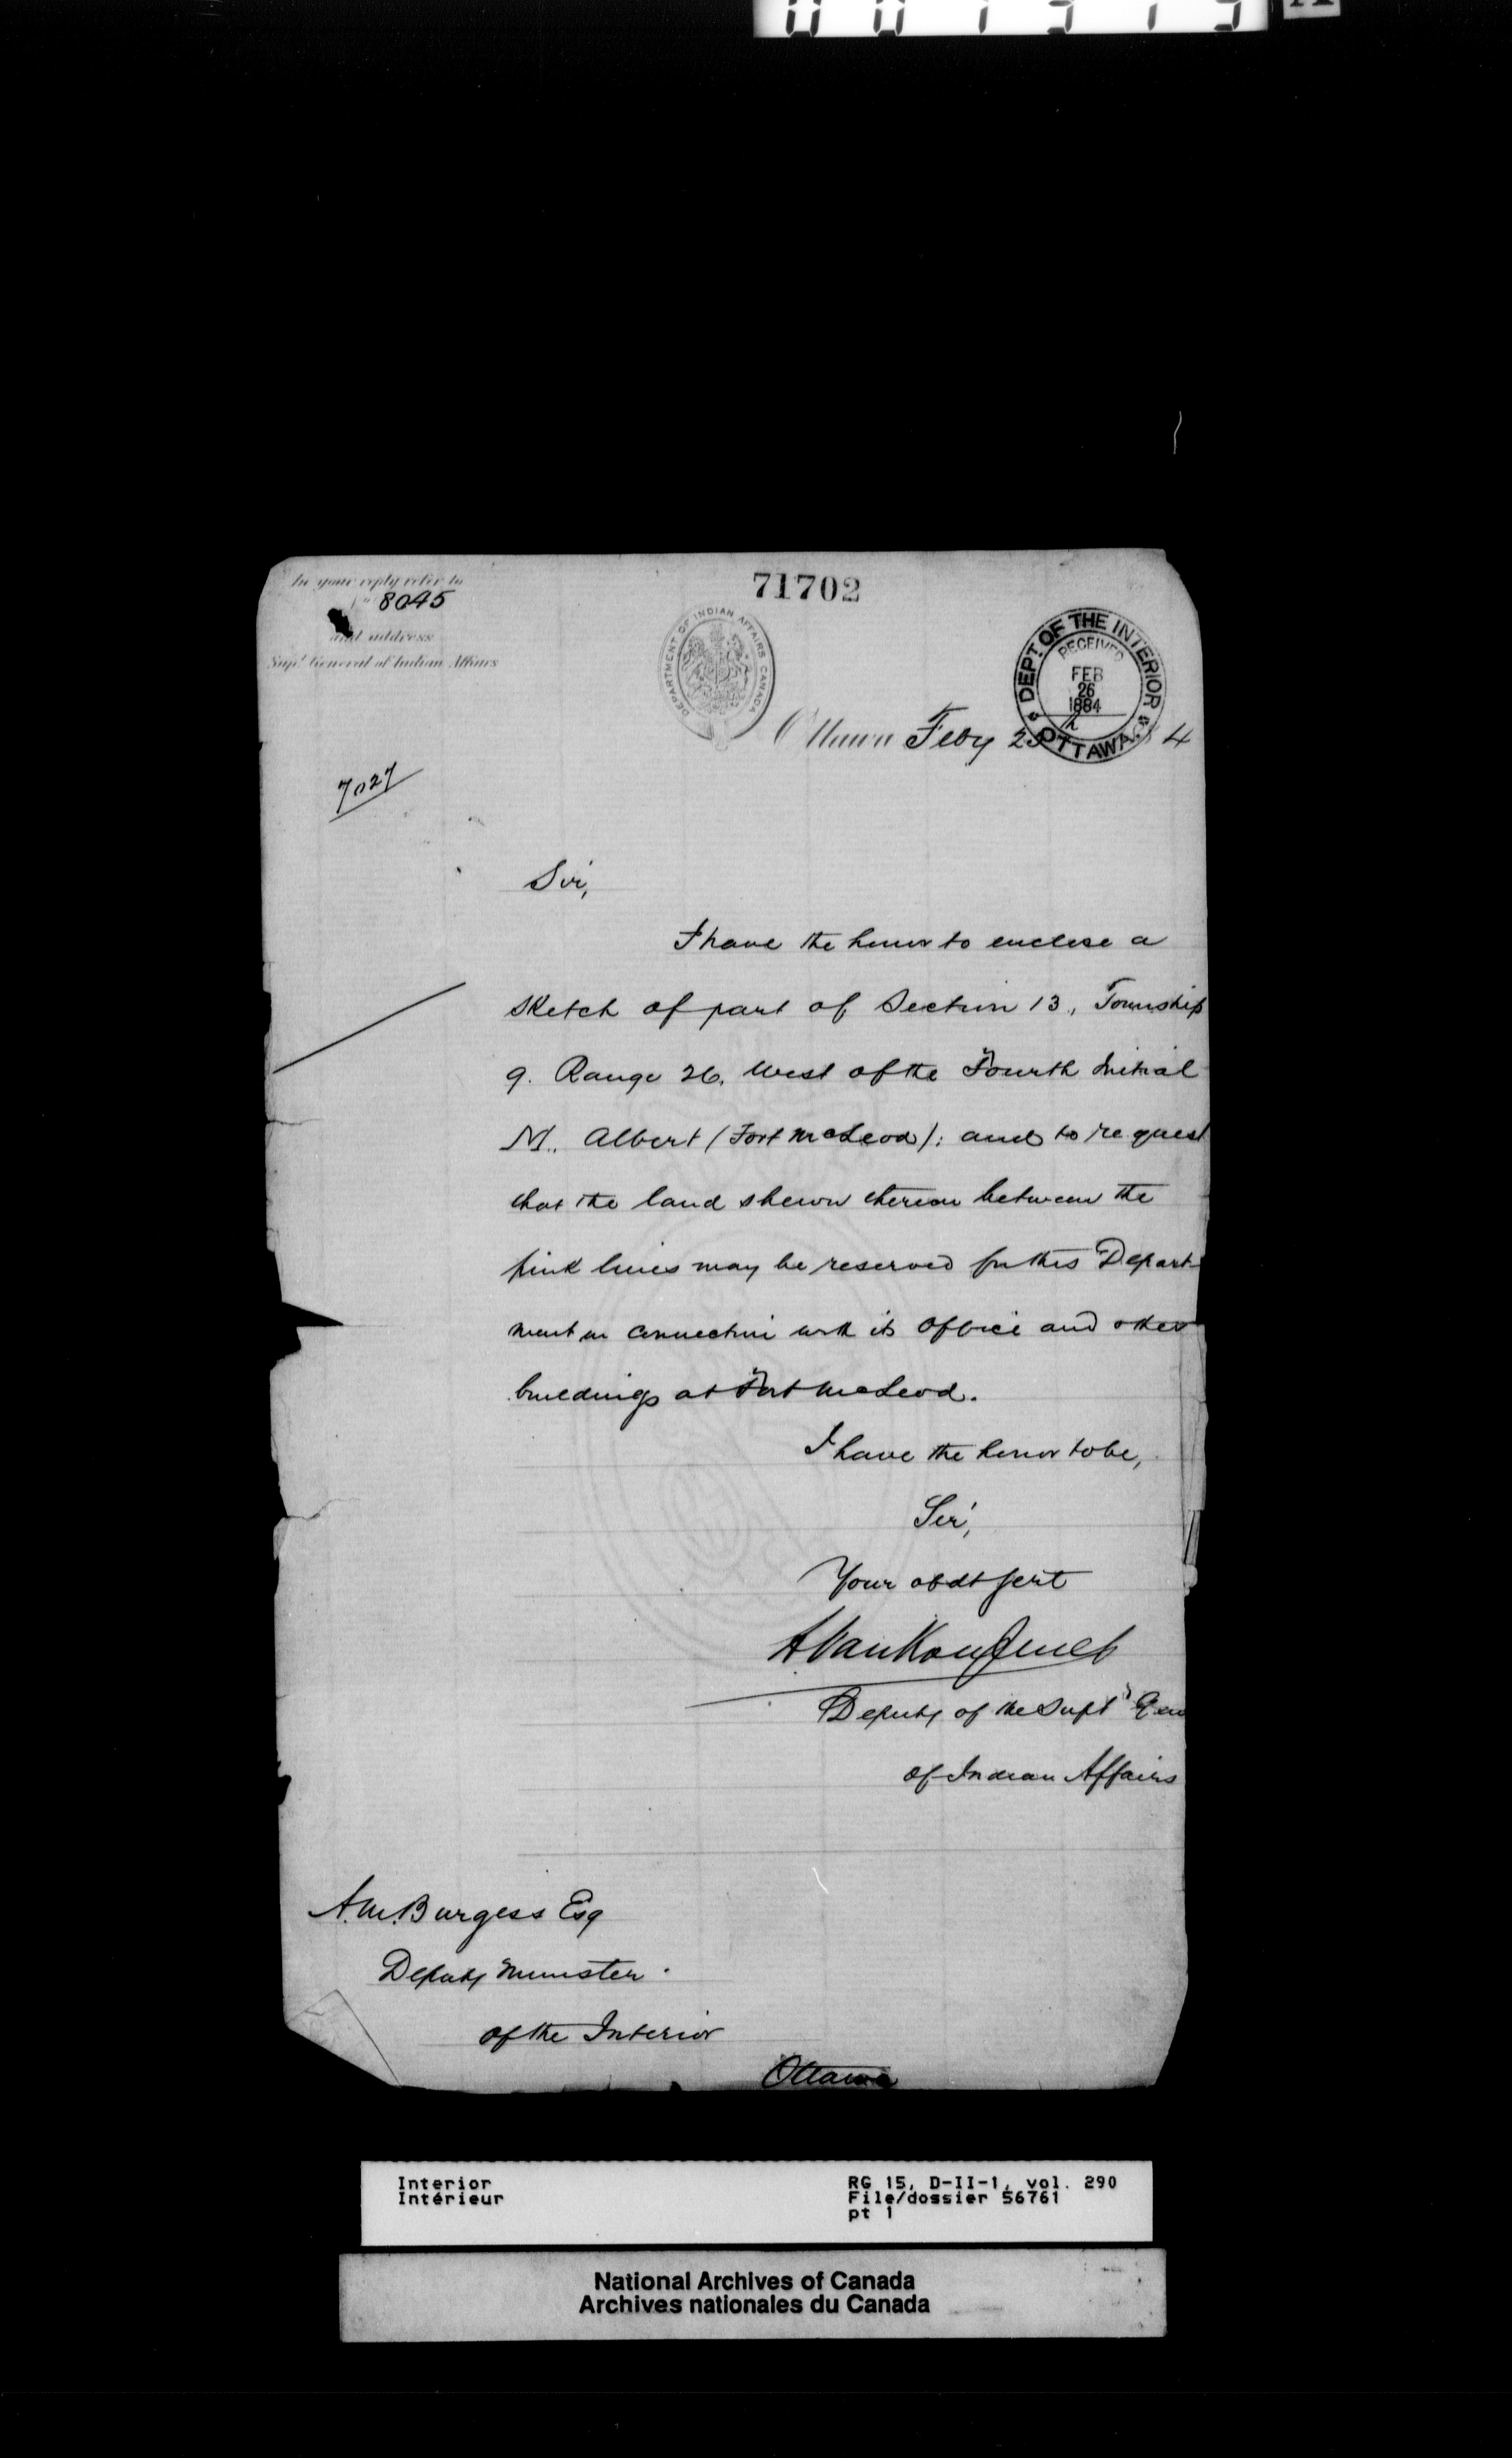 In your reply refer to
8045
and address
Supt. General of Indian Affairs
71702
DEPARTMENT OF INDIAN AFFAIRS CANADA
DEPT. OF THE INTERIOR
RECEIVED
FEB
26
1884
OTTAWA
Ottawa Feby 25 4
7027
Sir,
I have the honor to enclose a
sketch of part of Section 13, Township
9. Range 26, West of the Fourth Initial
M. Albert (Fort McLeod): and to request
that the land shewn thereon between the
pink lines may be reserved for this Depart-
ment in connection with its Office and other
buildings at Fort McLeod.
I have the honor to be,
Sir,
Your obdt Sert
A VanKoughnet
Deputy of the Supt Gen
of Indian Affairs
A.M. Burgess Esq
Deputy Minister
of the Interior
Ottawa
Interior
Intérieur
RG 15, D-II-1, vol. 290
File/dossier 56761
pt 1
National Archives of Canada
Archives nationales du Canada